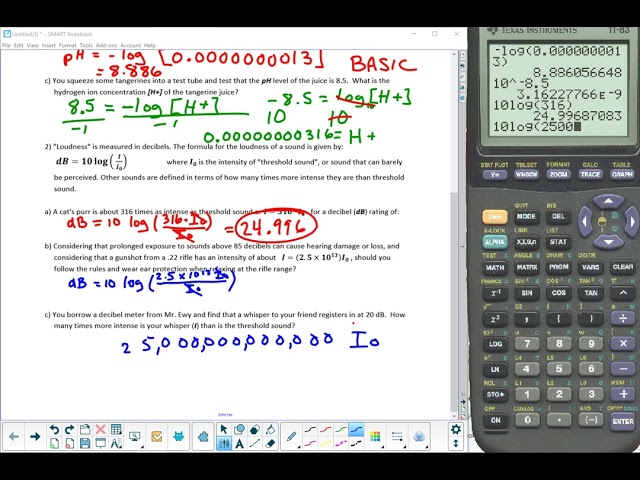 Untitled(3) * - SMART Notebook
TEXAS INSTRUMENTS TI-83
pH = -log [0.0000000013]
= 8.886 BASIC
c) You squeeze some tangerines into a test tube and test that the pH level of the juice is 8.5. What is the
hydrogen ion concentration [H+] of the tangerine juice?
8.5 = -log[H+] -8.5 = log[H+]
-1 -1 10 10
0.00000000316 = H+
2) "Loudness" is measured in decibels. The formula for the loudness of a sound is given by:
dB = 10 log(I/I0) where I0 is the intensity of "threshold sound", or sound that can barely
be perceived. Other sounds are defined in terms of how many times more intense they are than threshold
sound.
a) A cat's purr is about 316 times as intense as threshold sound for a decibel (dB) rating of:
dB = 10 log(316·I0/I0) = 24.996
b) Considering that prolonged exposure to sounds above 85 decibels can cause hearing damage or loss, and
considering that a gunshot from a .22 rifle has an intensity of about I = (2.5 × 10^13)I0, should you
follow the rules and wear ear protection when relaxing at the rifle range?
dB = 10 log(2.5 × 10^13 I0/I0)
c) You borrow a decibel meter from Mr. Ewy and find that a whisper to your friend registers in at 20 dB. How
many times more intense is your whisper (I) than is the threshold sound?
25,000,000,000,000 I0
-log(0.000000001
3)
8.886056648
10^-8.5
3.16227766E-9
10log(316)
24.99687083
10log(2500
STAT PLOT TBLSET FORMAT CALC TABLE
Y= WINDOW ZOOM TRACE GRAPH
2nd MODE DEL
ALPHA X,T,θ,n STAT
MATH APPS PRGM VARS CLEAR
x⁻¹ SIN COS TAN ^
x² , ( ) ÷
LOG 7 8 9 ×
LN 4 5 6 −
STO▸ 1 2 3 +
ON 0 . (−) ENTER